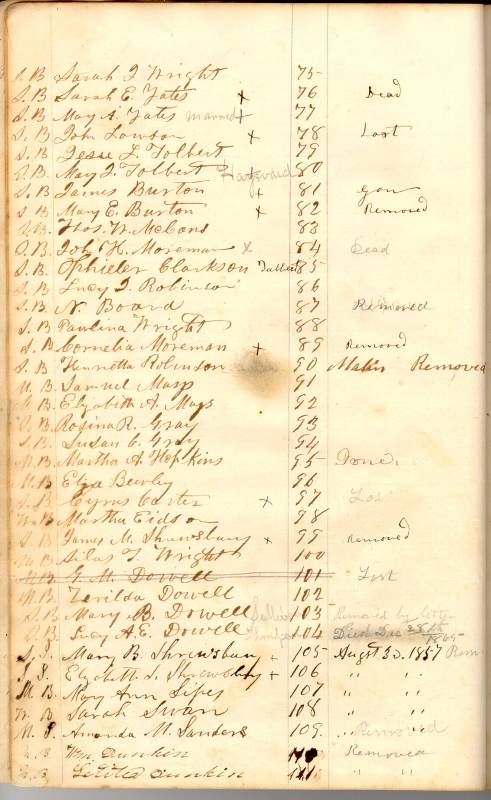 S. B Sarah J Wright 75
S. B Sarah E. Yates x 76 Dead
S. B Mary A. Yates Married + 77
S. B John Lawson x 78 Lost
S. B Jesse L. Tolbert 79
S. B. Mary J. Tolbert Hayward 80
S. B James Burton + 81 gon
S B Mary E. Burton x 82 Removed
Thos. W. 83
S. B. Joh H. Moreman x 84 Dead
S. B. Ophieler Clarkson 85
S. B. Lucy J. Robinson 86
S. B. N. Board 87 Removed
S. B Paulina Wright 88
S. B Cornelia Moreman + 89 Removed
S. B Henrietta Robinson 90 Removed
M. B. Samuel 91
M. B. Elizabeth A. Mays 92
S. B Rosina R. Gray 93
S. B. Susan C. Gray 94
M. B. Martha A Hopkins 95 Done.
M. B Eliza Bewley 96
S. B Cyrus Carter x 97 Lost
M. B Martha Eidson 98
S. B James M. Shrewsbury x 99 Removed
M B Silas T Wright 100
M. B G. M. Dowell 101 Lost
M. B. Zerilda Dowell 102
S. B Mary B. Dowell 103 Removed by letter
S. B. Lucy A. E. Dowell 104 Died Dec 28th 1865
S. S. Mary B. Shrewsbury + 105 August 30. 1857 Rem
S S. Elizabeth S. Shrewsbury + 106 " " "
M. B Mary Ann Sipes 107 " " "
M. B Sarah Swan 108 " " "
M. S. Amanda M. Sanders 109. " Removed
M. B Wm. Dunkin 110 Removed
M. B. Letitia Dunkin 111. " "